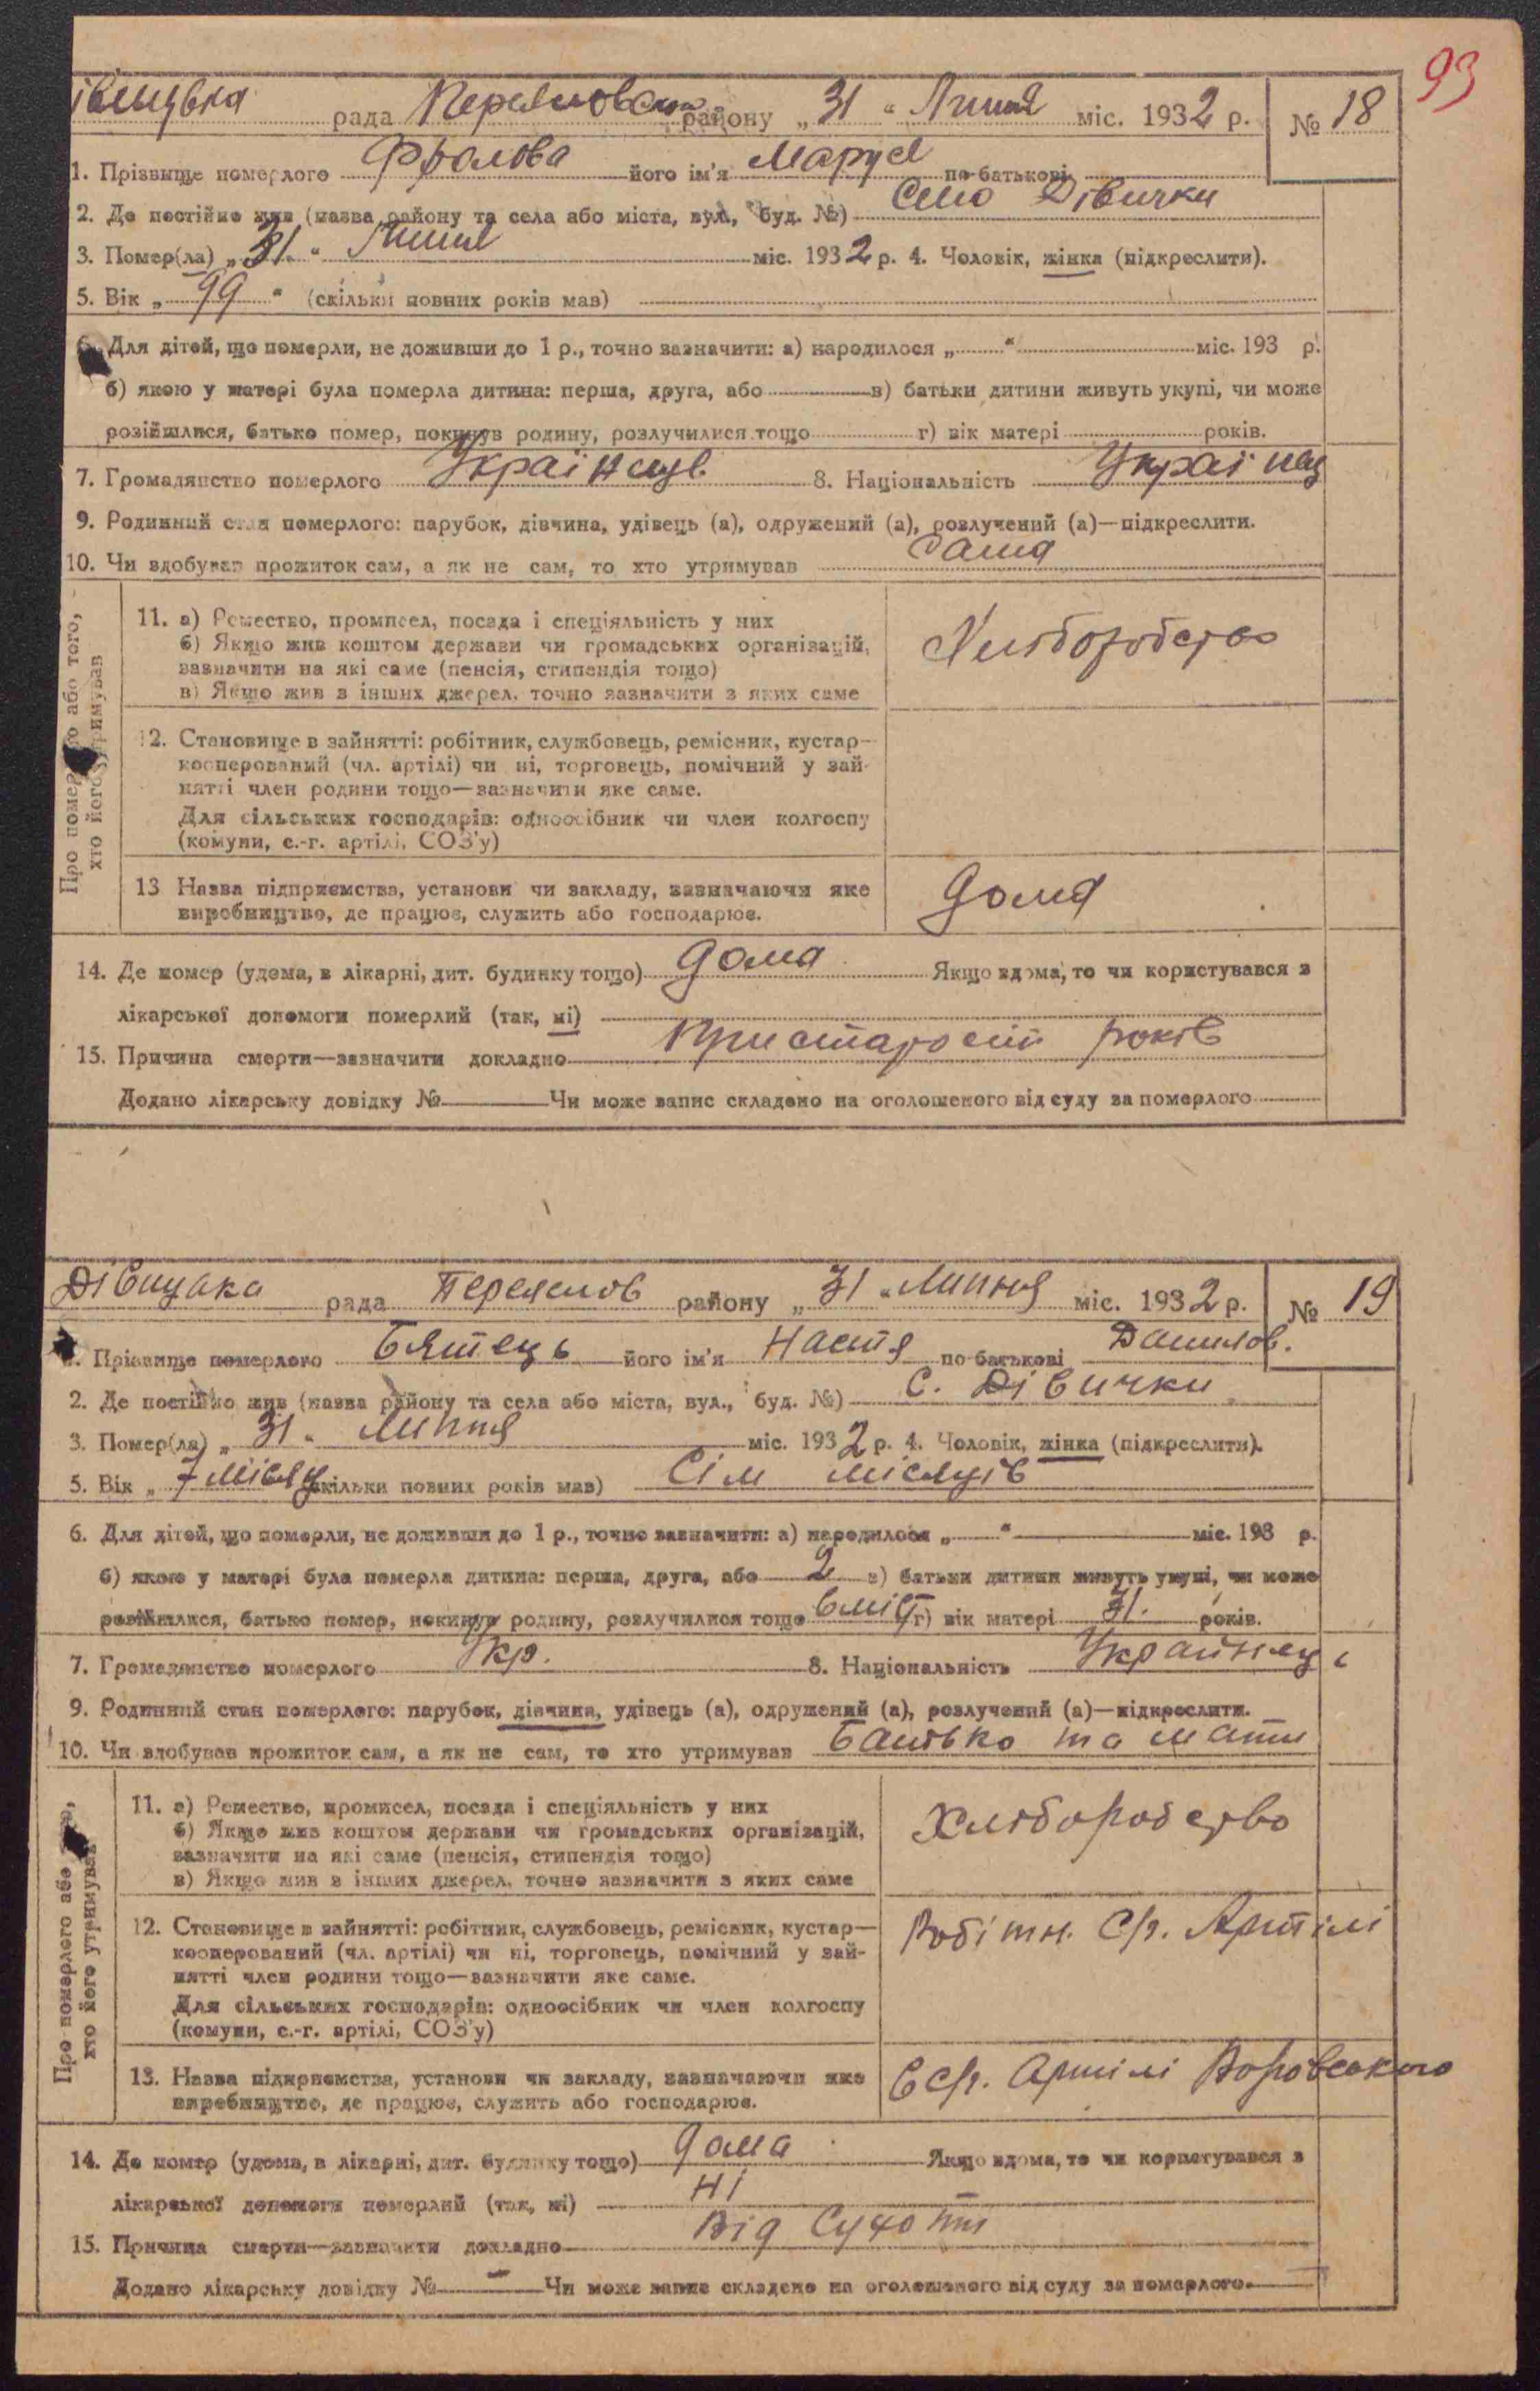 93
рада Переяловског району „31“ Липня міс. 1932 р. № 18
1. Прізвище померлого Фролова його ім'я Маруся по-батькові
2. Де постійно жив (назва району та села або міста, вул., буд. №) Село Дівички
3. Помер(ла) „31“ Липня міс. 1932 р. 4. Чоловік, жінка (підкреслити).
5. Вік „99“ (скільки повних років мав)
6. Для дітей, що померли, не доживши до 1 р., точно зазначити: а) народилося „ “ міс. 193 р.
б) якою у матері була померла дитина: перша, друга, або в) батьки дитини живуть укупі, чи може
розійшлися, батько помер, покинув родину, розлучилися тощо г) вік матері років.
7. Громадянство померлого 8. Національність
9. Родинний стан померлого: парубок, дівчина, удівець (а), одружений (а), розлучений (а)—підкреслити.
10. Чи здобував прожиток сам, а як не сам, то хто утримував Сама
Про померлого або того, хто його утримував
11. а) Ремество, промисел, посада і спеціяльність у них
б) Якщо жив коштом держави чи громадських організацій,
зазначити на які саме (пенсія, стипендія тощо)
в) Якщо жив з інших джерел, точно зазначити з яких саме
Хліборобство
12. Становище в зайнятті: робітник, службовець, ремісник, кустар—
кооперований (чл. артілі) чи ні, торговець, помічний у зай-
нятті член родини тощо—зазначити яке саме.
Для сільських господарів: одноосібник чи член колгоспу
(комуни, с.-г. артілі, СОЗ'у)
13 Назва підприємства, установи чи закладу, зазначаючи яке
виробництво, де працює, служить або господарює.
дома
14. Де помер (удома, в лікарні, дит. будинку тощо) дома Якщо вдома, то чи користувався з
лікарської допомоги померлий (так, ні)
15. Причина смерти—зазначити докладно років
Додано лікарську довідку № Чи може запис складено на оголошеного від суду за померлого
рада Переяслов району „31“ Липня міс. 1932 р. № 19
1. Прізвище померлого Бятець його ім'я Настя по-батькові Данилов.
2. Де постійно жив (назва району та села або міста, вул., буд. №) С. Дівички
3. Помер(ла) „31“ Липня міс. 1932 р. 4. Чоловік, жінка (підкреслити).
5. Вік „7 місяц (скільки повних років мав) Сім місяців
6. Для дітей, що померли, не доживши до 1 р., точно зазначити: а) народилося „ “ міс. 193 р.
б) якою у матері була померла дитина: перша, друга, або 2 в) батьки дитини живуть укупі, чи може
розійшлися, батько помер, покинув родину, розлучилися тощо г) вік матері 31. років.
7. Громадянство померлого Укр. 8. Національність Украйнець
9. Родинний стан померлого: парубок, дівчина, удівець (а), одружений (а), розлучений (а)—підкреслити.
10. Чи здобував прожиток сам, а як не сам, то хто утримував Батько та мати
Про померлого або того, хто його утримував
11. а) Ремество, промисел, посада і спеціяльність у них
б) Якщо жив коштом держави чи громадських організацій,
зазначити на які саме (пенсія, стипендія тощо)
в) Якщо жив з інших джерел, точно зазначити з яких саме
Хліборобство
12. Становище в зайнятті: робітник, службовець, ремісник, кустар—
кооперований (чл. артілі) чи ні, торговець, помічний у зай-
нятті член родини тощо—зазначити яке саме.
Для сільських господарів: одноосібник чи член колгоспу
(комуни, с.-г. артілі, СОЗ'у)
Робітн. С/г. Артілі
13. Назва підприємства, установи чи закладу, зазначаючи яке
виробництво, де працює, служить або господарює.
В с/г. Артілі Воровського
14. Де помер (удома, в лікарні, дит. будинку тощо) дома Якщо вдома, то чи користувався з
лікарської допомоги померлий (так, ні) ні
15. Причина смерти—зазначити докладно Від Сухоти
Додано лікарську довідку № — Чи може запис складено на оголошеного від суду за померлого.